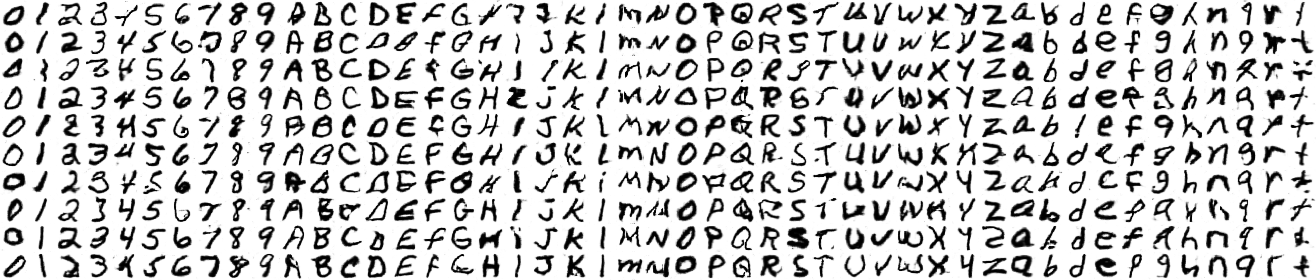 0 1 2 3 4 5 6 7 8 9 A B C D E F G H I J K l m N O P Q R S T U V W X Y Z a b d e f g h n q r t
0 1 2 3 4 5 6 7 8 9 A B C D E F G H I J K l m N O P Q R S T U V W X Y Z a b d e f g h n q r t
0 1 2 3 4 5 6 7 8 9 A B C D E F G H I J K l m N O P Q R S T U V W X Y Z a b d e f g h n q r t
0 1 2 3 4 5 6 7 8 9 A B C D E F G H I J K l M N O P Q R S T U V W X Y Z a b d e f g h n q r t
0 1 2 3 4 5 6 7 8 9 A B C D E F G H I J K l M N O P Q R S T U V W X Y Z a b d e f g h n q r t
0 1 2 3 4 5 6 7 8 9 A B C D E F G H I J K l m N O P Q R S T U V W X Y Z a b d e f g h n q r t
0 1 2 3 4 5 6 7 8 9 A B C D E F G H I J K l M N O P Q R S T U V W X Y Z a b d e f g h n q r t
0 1 2 3 4 5 6 7 8 9 A B C D E F G H I J K l m N O P Q R S T U V W X Y Z a b d e f g h n q r t
0 1 2 3 4 5 6 7 8 9 A B C D E F G H I J K l M N O P Q R S T U V W X Y Z a b d e f g h n q r t
0 1 2 3 4 5 6 7 8 9 A B C D E F G H I J K l m N O P Q R S T U V W X Y Z a b d e f g h n q r t